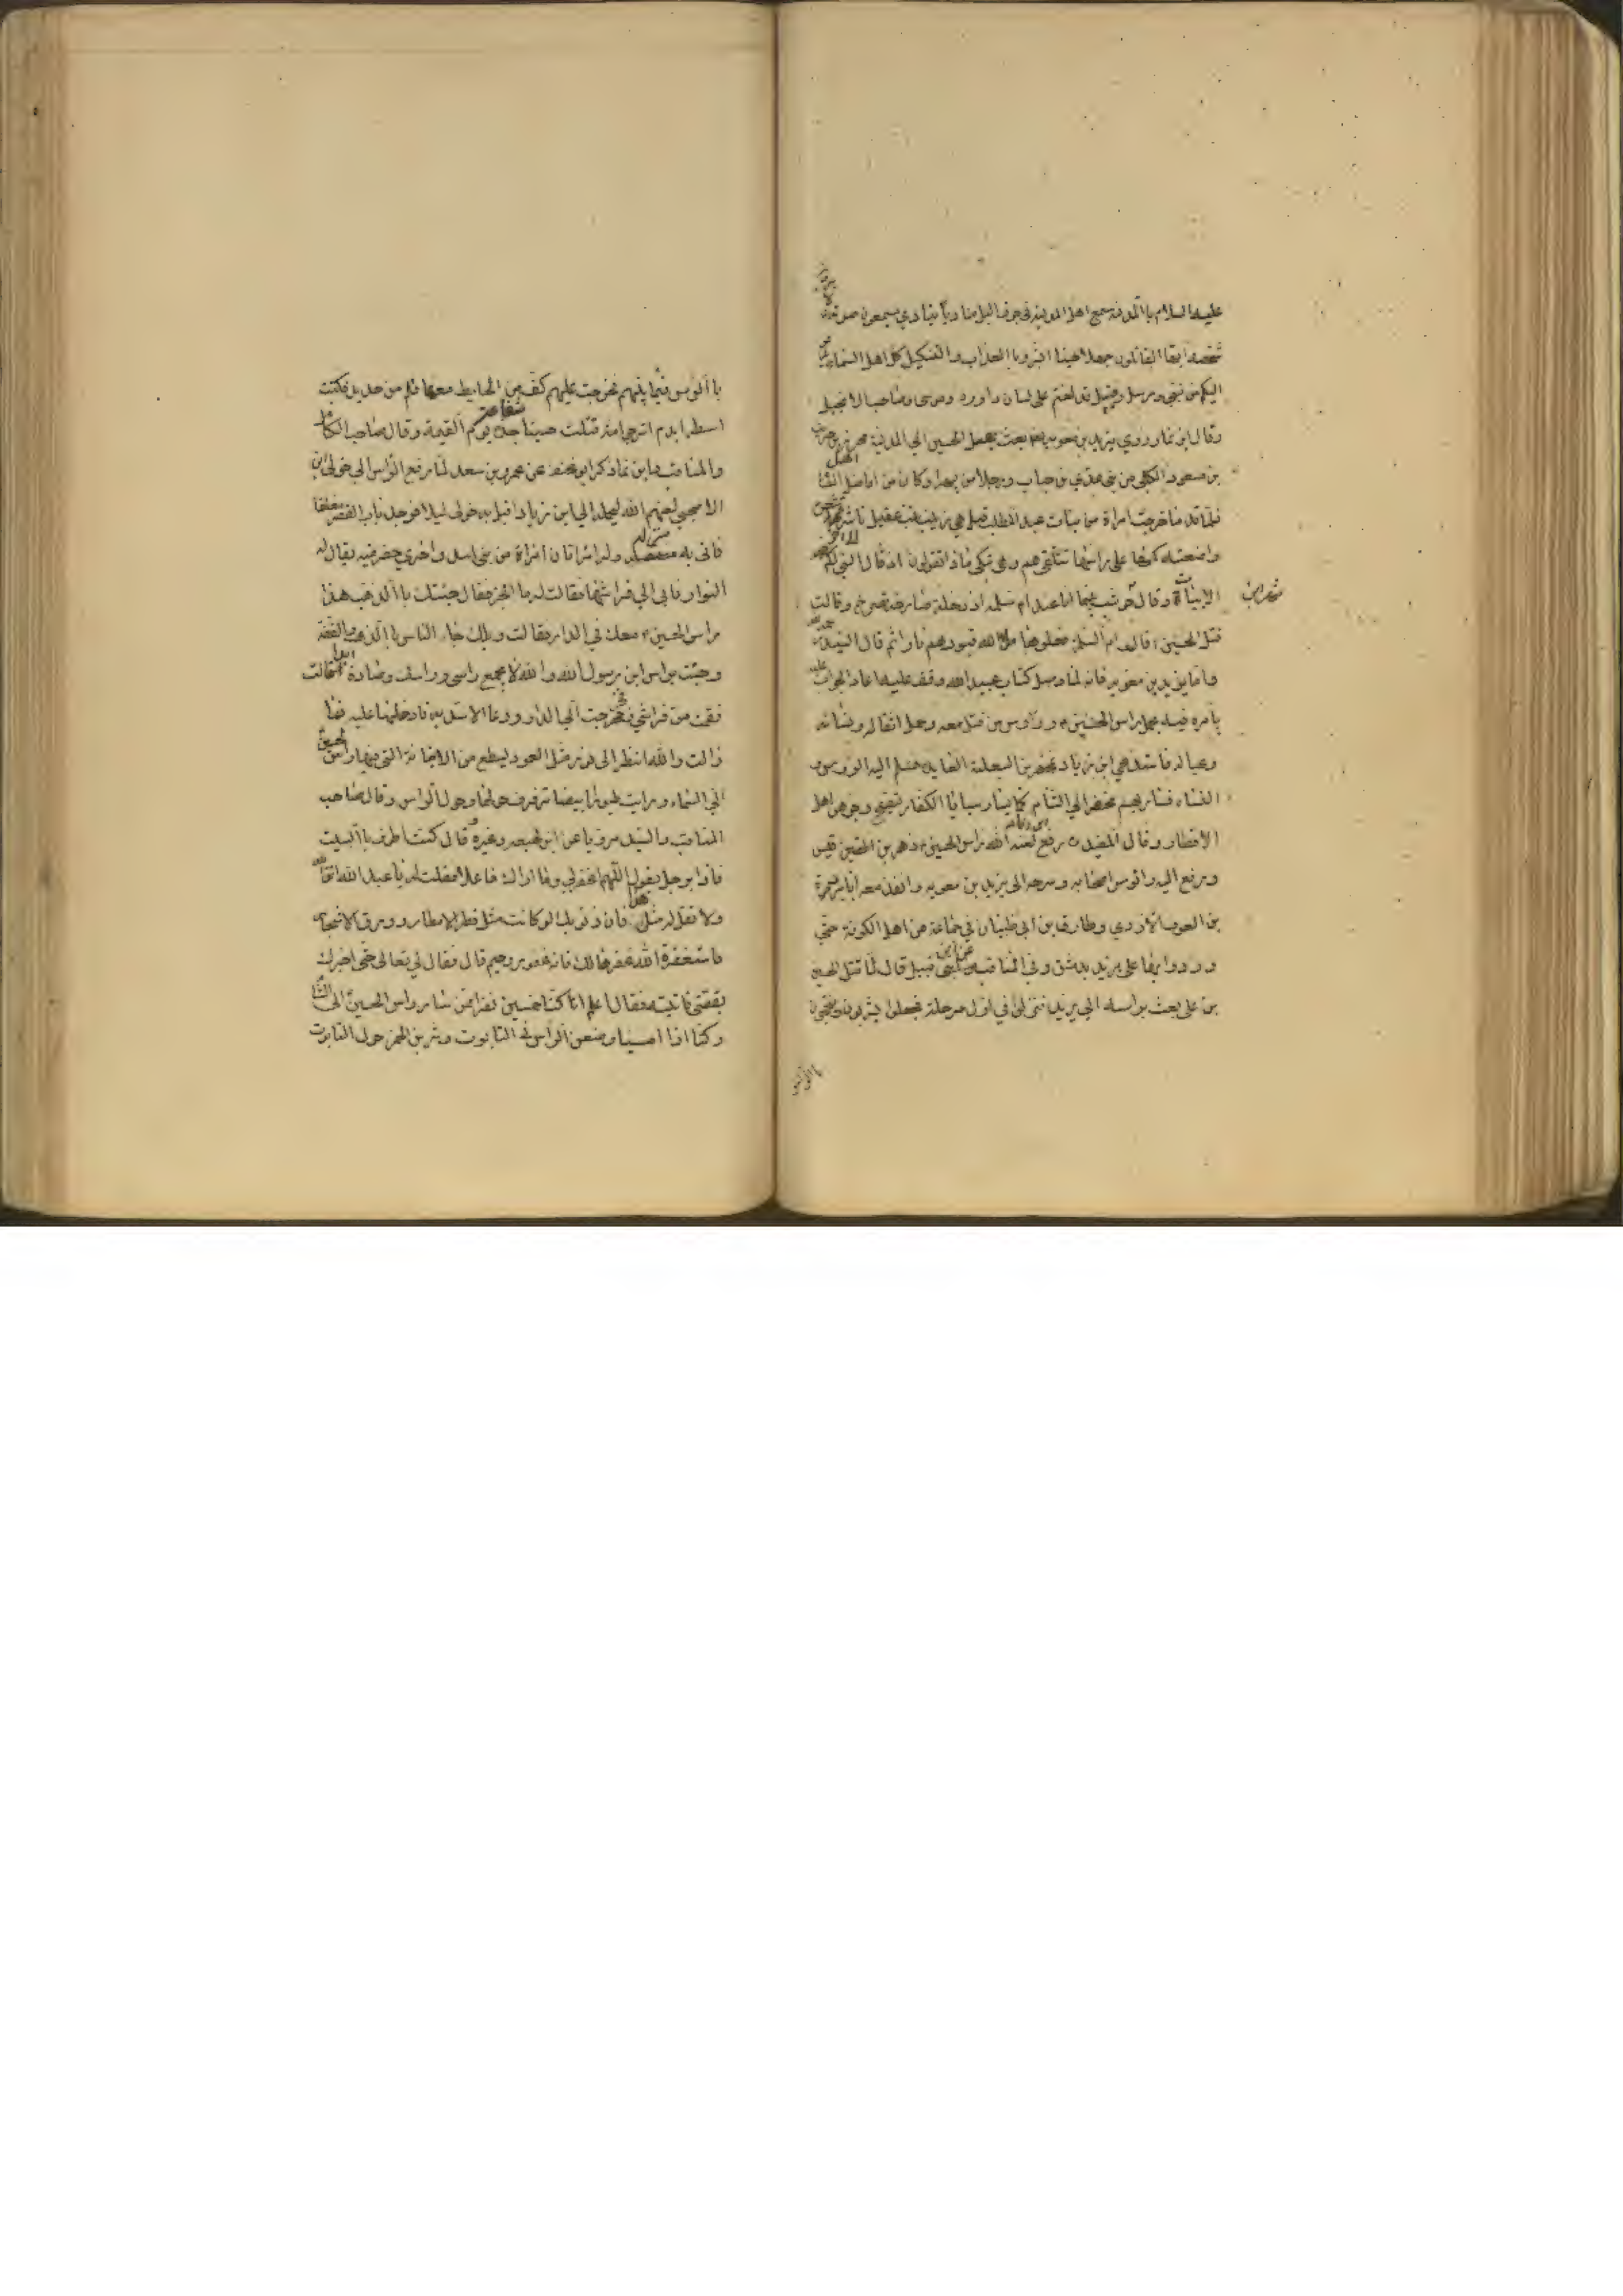 عليه السلام با المدينة سمع اهل المدينة في جوف الليل مناديا ينادي يسمعون صوته ولا يرون
شخصه ايها القاتلون جهلا حسينا ابشروا با العذاب والتنكيل كل اهل السماء
اليكم من نبي ومرسل وقتيل قد لعنتم على لسان داود وموسى وصاحب الانجيل
وقال ابن نما وروي يزيد بن معوية بعث بحمل الحسين الى المدينة محرز بن حريث
بن مسعود الكلبي من بني عدي بن حباب ورجلا من بهرا وكان من افاضل اهل الشام
فلما قدما خرجت امراة من بنات عبد المطلب قيل هي زينب بنت عقيل ناشرة شعرها
واضعة كمها على راسها تتلقى هم وهي تبكي ماذا تقولون اذ قال النبي لكم
الابيات وقال شهر ابن حوشب بينما انا عند ام سلمه اذ دخلت صارخة تصرخ وقالت
قتل الحسين قالت ام السلمة فعلوها ملا الله قبورهم نارا ثم قال السيد
واما يزيد بن معوية فانه لما وصل كتاب عبيد الله وقف عليه اعاد الجواب عليه
يامره فيه بحمل راس الحسين ورؤس من قتل معه وحمل اثقاله ونسائه
وعياله فاستدعي ابن زياد بمحفر بن ثعلبة العايدي فسلم اليه الرؤس و
النساء فسار بهم محفر الى الشام كما يسار سبايا الكفار يتصفح وجوههن اهل
الاقطار وقال المفيد دفع ابن زياد لعنه الله راس الحسين زحر بن القيس
ودفع اليه رؤس اصحابه وسرحه الى يزيد بن معويه وانفذ معه ابا بردة
بن العوف الازدي وطارق بن ابي ظبيان في جماعة من اهل الكوفة حتى
وردوا بها على يزيد بدمشق وفي المناقب عن ابي قبيل قال لما قتل الحسين
بن علي بعث براسه الى يزيد فنزلوا في اول مرحلة فجعلوا يشربون
با الرؤس
با الرؤس فيما بينهم فخرجت عليهم كف من الحايط معها قلم من حديد فكتبت
اسطرا بدم اترجوا امة قتلت حسينا شفاعة جده يوم القيمة وقال صاحب الكامل
والمناقب وابن نما ذكر ابو مخنف عن عمرو بن سعد لما دفع الراس الى خولى ابن
الاصبحي لعنهم الله ليحمله الى ابن زياد اقبل به خولى ليلا فوجد باب القصر مغلقا
فاتى به منزله وله امراتان امراة من بني اسد واخرى حضرميه يقال لها
النوار فاوى الى فراشها فقالت له ما الخبر فقال جئتك با الذهب هذا
راس الحسين معك في الدار فقالت ويلك جاء الناس با الذهب والفضة
وجئت براس ابن رسول الله والله لا يجمع راسي وراسك وسادة ابدا قالت
فقمت من فراشي فخرجت الى الدار ودعا الاسديه فادخلها عليه فما
زالت والله انظر الى نور مثل العمود يسطع من الاجانة التي فيها راس الحسين
الى السماء ورايت طيورا بيضا ترفرف حولها وحول الراس وقال صاحب
المناقب والسيد مرويا عن ابن لهيعه وغيره قال كنت اطوف با البيت
فاذا برجل يقول اللهم اغفر لي وما اراك فاعلا فقلت له يا عبد الله اتق الله
ولا تقل له مثل هذا فان ذنوبك لو كانت مثل قطر الامطار وورق الاشجار
فاستغفرت الله غفرها لك فانه غفور رحيم قال فقال لي تعالى حتى اخبرك
بقصتي فاتيته فقال اعلم انا كنا خمسين نفرا ممن سار براس الحسين الى الشام
وكنا اذا امسينا وضعنا الراس في التابوت وشربنا الخمر حول التابوت